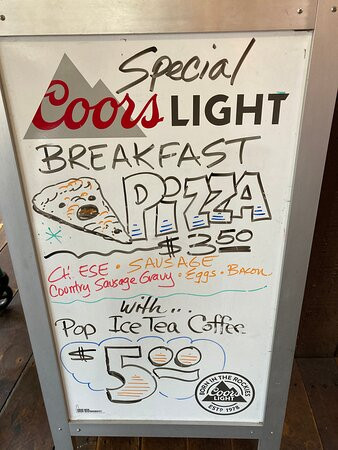 Special
Coors LIGHT
BREAKFAST
PIZZA
$3.50
CHEESE · SAUSAGE
Country Sausage Gravy · Eggs · Bacon
with...
Pop Ice Tea Coffee
$5.00
BORN IN THE ROCKIES
Coors
LIGHT
ESTD 1978